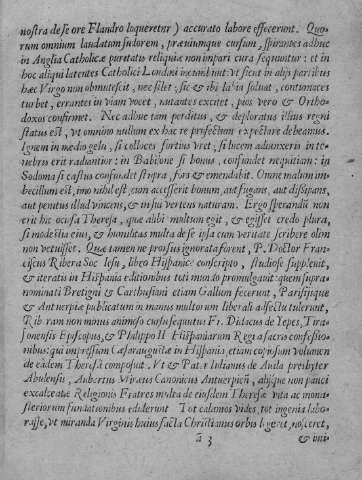 nostra de se ore Flandro loqueretur) accurato labore effecerunt. Quo-
rum omnium laudatum sudorem, præuiumque cursum, spirantes adhuc
in Anglia Catholicæ puritatis reliquiæ non impari cura sequuntur: et in
hoc aliqui latentes Catholici Londini incumbunt: vt sicut in alijs partibus
hæc Virgo non obmutescit, nec silet; sic & ibi
turbet, errantes in viam vocet, excitet, pios vero & Ortho-
doxos confirmet. Nec adhuc tam perditus, & deploratus illius regni
status est, vt omnino nullum ex hac re profectum expectare debeamus.
Ignem in medio gelu, si colloces fortius vret, si lucem adunxeris in te-
nebris erit radiantior: in Babilone si bonus, confundet nequitiam: in
Sodoma si castus confundet stupra, fors & emendabit. Omne malum im-
becillum est, imo nihil est, cum accesserit bonum, aut fugans, aut dissipans,
aut penitus illud vincens, & in sui vertens naturam. Ergo sperandum non
erit hic ociosa Theresa, quæ alibi multum egit, & egisset credo plura,
si modestia eius, & humilitas multa de se ipsa cum veritate scribere olim
non vetuisset. Quæ tamen ne prorsus ignorata forent, P. Doctor Fran-
ciscus Ribera Soc Iesu, libro Hispanicè conscripto, studiose suppleuit,
& iteratis in Hispania editionibus toti mundo promulgauit: quem supra-
nominati Bretigni & Carthusiani etiam Gallum fecerunt, Parisijsque
& Antuerpiæ publicatum in manus multorum liberali adfectu tulerunt.
Riberam non minus animoso cursu sequutus Fr. Didacus de Yepes, Tira-
sonensis Episcopus, & Philippo II Hispaniarum Regi a sacris confessio-
nibus: qui impressum Cæsaraugustæ in Hispania, etiam copiosum volumen
de eadem Theresa composuit. Vt & Pater Iulianus de Auila presbyter
Abulensis, Aubertus Miræus Canonicus Antuerpiæ, alijque non pauci
excalceatæ Religionis Fratres multa de eiusdem Theresæ vita ac mona-
steriorum fundationibus ediderunt Tot calamos vides, tot ingenia labo-
rasse, vt miranda Virginis huius facta Christianus orbis legeret, nosceret,
ã 3